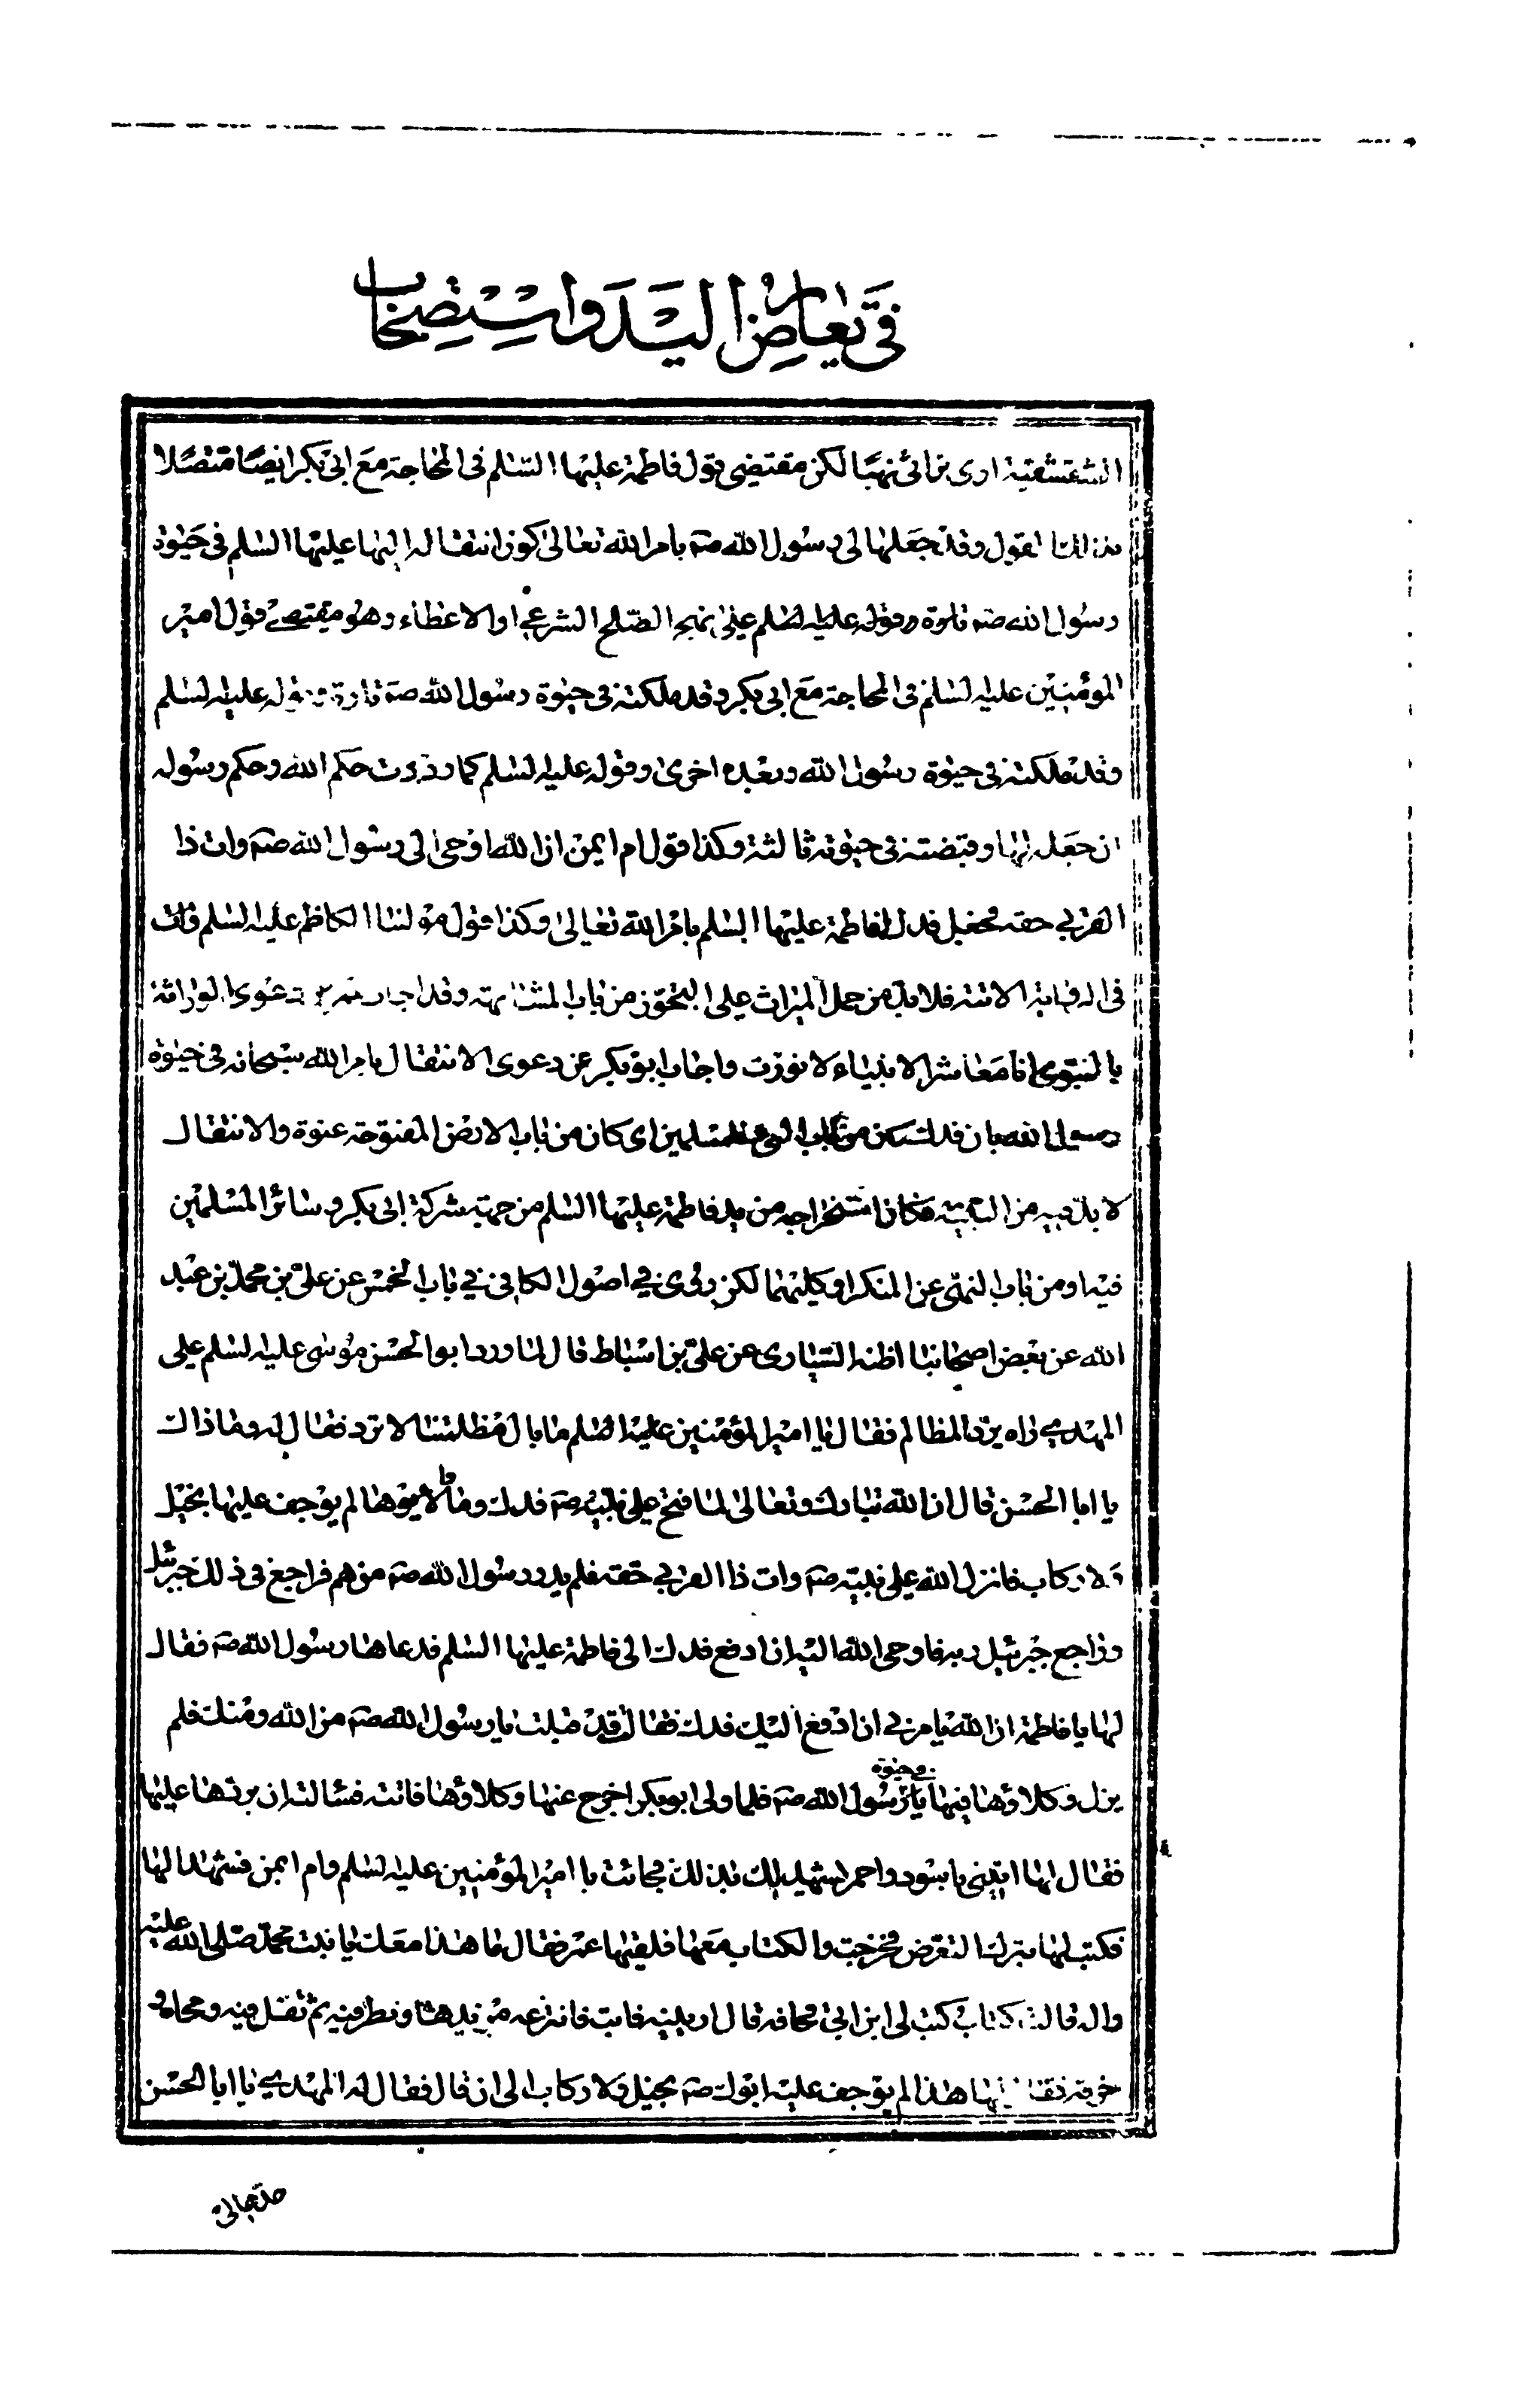 في تعارض اليد واستصحاب
الشقشقية ارى تراثي نهبا لكن مقتضى قول فاطمة عليها السلم في المحاجة مع ابي بكر ايضا متصلا
بذلك القول وقد جعلها لي رسول الله صه بامر الله تعالى كون انتقاله اليها عليها السلم في حيوة
رسول الله صه تارة وقوله عليه السلم على نهج الصلح الشرعي او الاعطاء وهو مقتضى قول امير
المؤمنين عليه السلم في المحاجة مع ابي بكر وقد ملكته في حيوة رسول الله صه تارة وقوله عليه السلم
وقد ملكته في حيوة رسول الله وبعده اخرى وقوله عليه السلم كما رددت حكم الله وحكم رسوله
ان جعل لها وقبضته في حيوته ثالثة وكذا قول ام ايمن ان الله اوحى الى رسول الله صه وات ذا
القربى حقه فجعل فدك لفاطمة عليها السلم بامر الله تعالى وكذا قول مولنا الكاظم عليه السلم فات
في الرواية الاتية فلا بد من حمل الميراث على التجوز من باب المشابهة وقد اجاب عن دعوى الوراثة
بالنبوي انا معاشر الانبياء لا نورث واجاب ابو بكر عن دعوى الانتقال بامر الله سبحانه في حيوة
رسول الله بان فدك من باب الفيء للمسلمين اي كان من باب الارض المفتوحة عنوة والانتقال
لا بد فيه من البينة فكان استخراجه من يد فاطمة عليها السلم من جهة شركة ابي بكر وسائر المسلمين
فيه او من باب النهي عن المنكر او كليهما لكن روى في اصول الكافي في باب الخمس عن علي بن محمد بن عبد
الله عن بعض اصحابنا اظنه السياري عن علي بن اسباط قال لما ورد ابو الحسن موسى عليه السلم على
المهدي راه يرد المظالم فقال يا امير المؤمنين عليه السلم ما بال مظلمتنا لا ترد فقال له وما ذاك
يا ابا الحسن قال ان الله تبارك وتعالى لما فتح على نبيه صه فدك وما والاها لم يوجف عليها بخيل
ولا ركاب فانزل الله على نبيه صه وات ذا القربى حقه فلم يدر رسول الله صه من هم فراجع في ذلك جبرئيل
وراجع جبرئيل ربه فاوحى الله اليه ان ادفع فدك الى فاطمة عليها السلم فدعاها رسول الله صه فقال
لها يا فاطمة ان الله يامرني ان ادفع اليك فدك فقالت قد قبلت يا رسول الله صه من الله ومنك فلم
يزل وكلاؤها فيها في حيوة رسول الله صه فلما ولى ابو بكر اخرج عنها وكلاؤها فاتته فسالته ان يردها عليها
فقال لها ايتيني باسود واحمر يشهد لك بذلك فجائت با امير المؤمنين عليه السلم وام ايمن فشهدا لها
فكتب لها بترك التعرض فخرجت والكتاب معها فلقيها عمر فقال ما هذا معك يا بنت محمد صلى الله عليه
واله قالت كتاب كتب لي ابن ابي قحافه قال ارينيه فابت فانتزعه من يدها ونظر فيه ثم تفل فيه ومحاه و
خرقه فقال لها هذا لم يوجف عليه ابوك صه بخيل ولا ركاب الى ان قال فقال له المهدي يا ابا الحسن